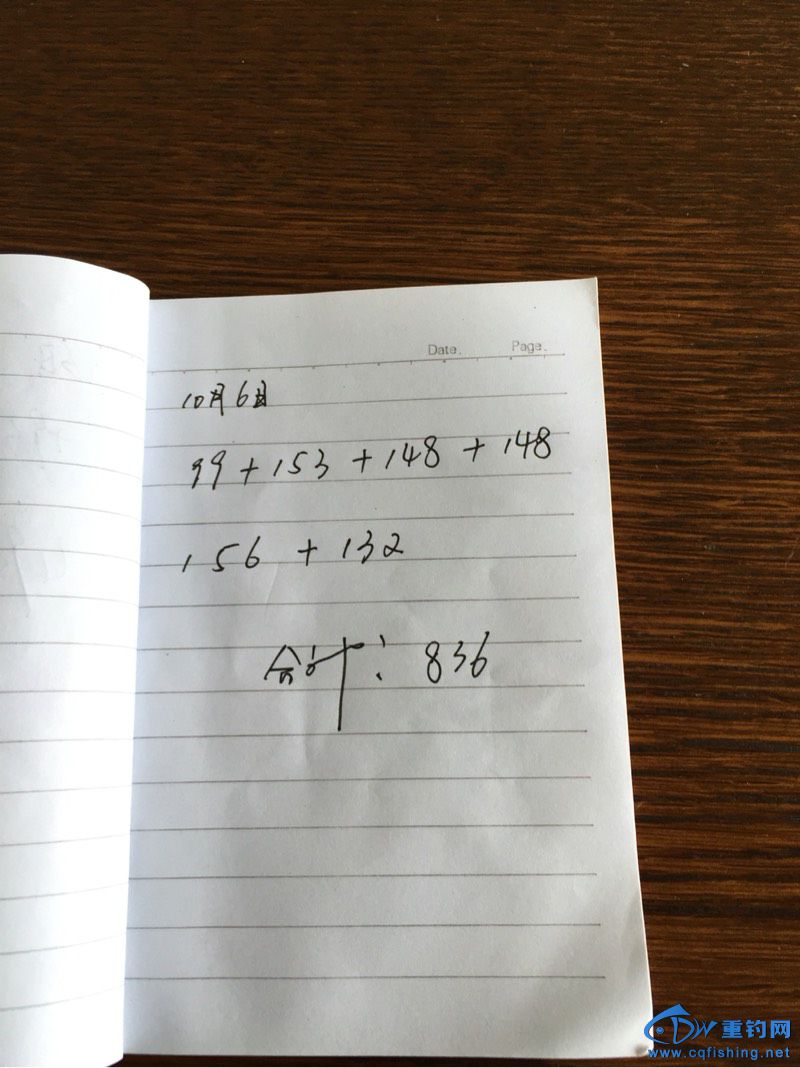 Date. Page.
10月6日
99+153+148+148
156+132
合计:836
重钓网
www.cqfishing.net